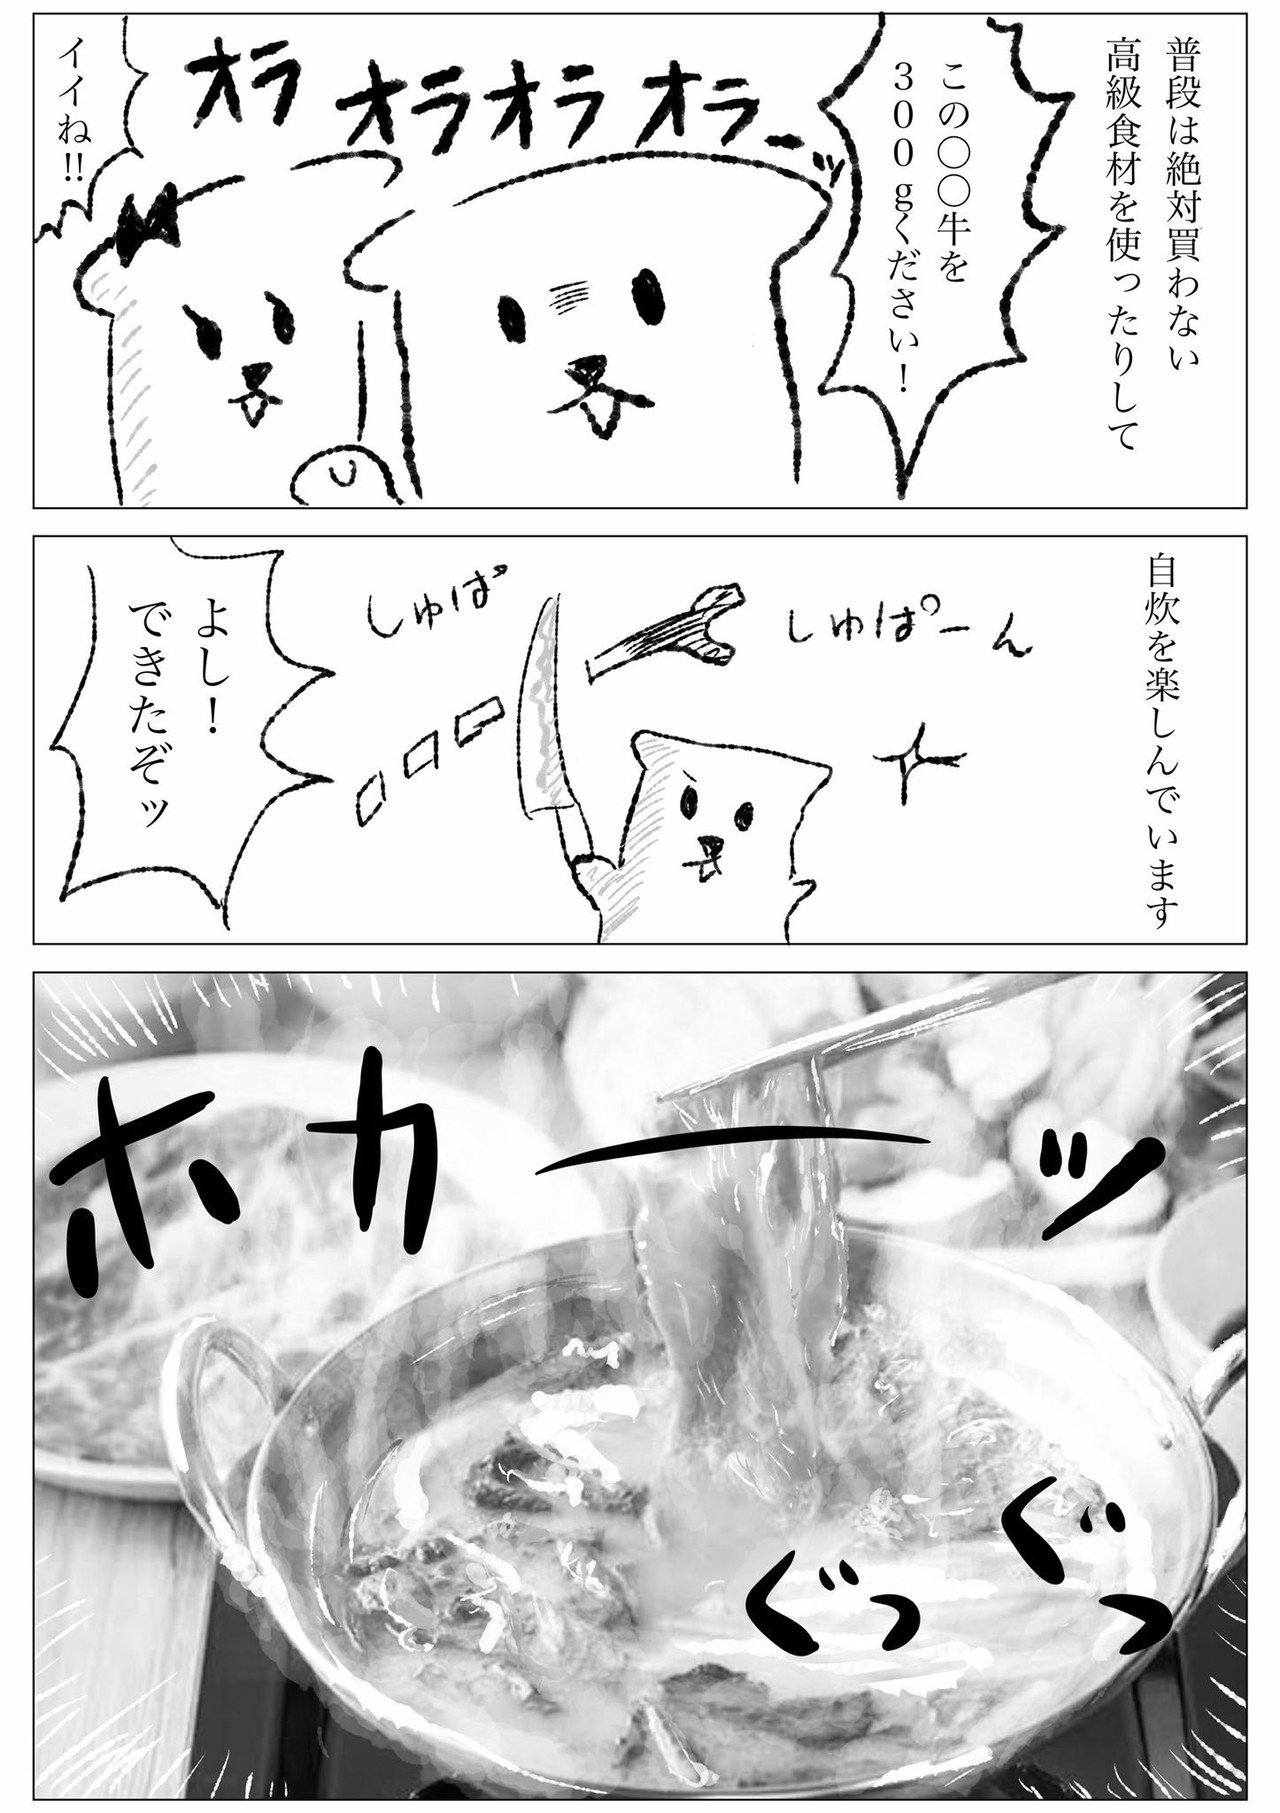 普段は絶対買わない
高級食材を使ったりして
この〇〇牛を
300gください!
オラ
オラオラオラーッ
イイね!!
自炊を楽しんでいます
しゅぱーん
しゅぱ
よし!
できたぞッ
ホカーッ
ぐっ
ぐっ